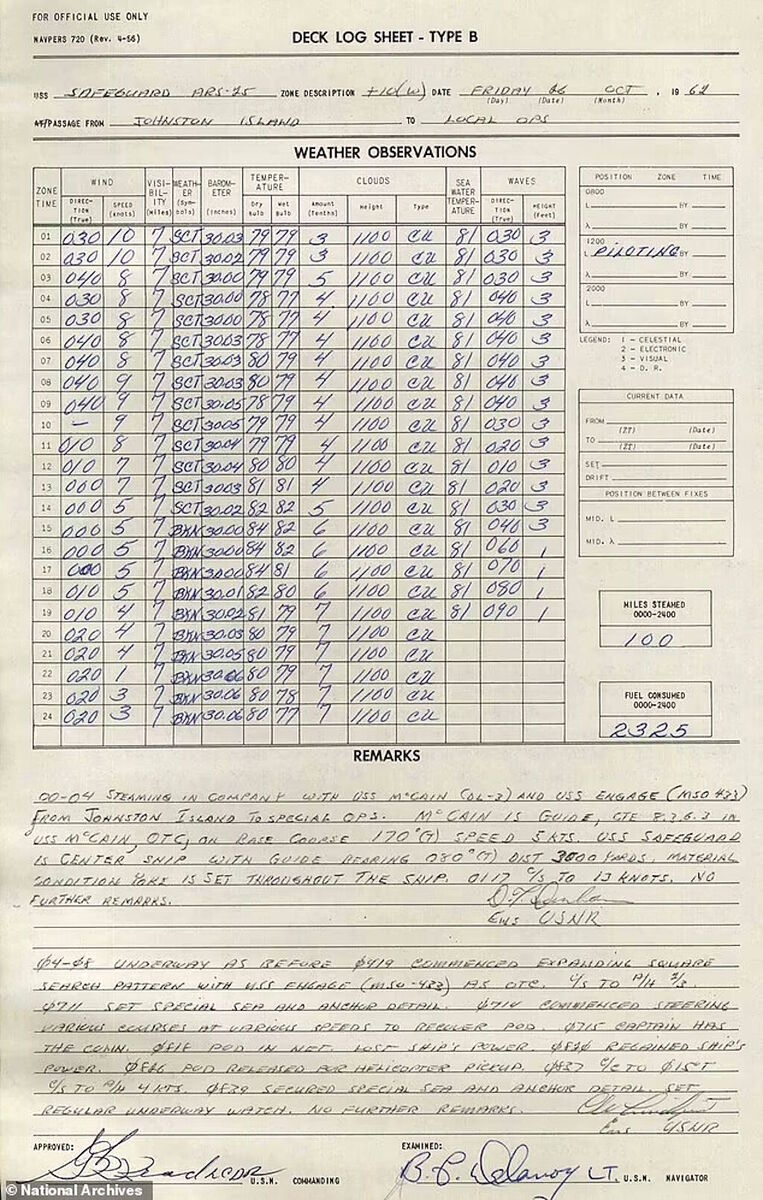 FOR OFFICIAL USE ONLY
NAVPERS 720 (Rev. 4-56)
DECK LOG SHEET - TYPE B
USS SAFEGUARD ARS-25 ZONE DESCRIPTION +10(W) DATE FRIDAY 26 OCT , 1962
(Day) (Date) (Month)
AT/PASSAGE FROM JOHNSTON ISLAND TO LOCAL OPS
WEATHER OBSERVATIONS
ZONE TIME WIND VISIBILITY (Miles) WEATHER (Symbols) BAROMETER (Inches) TEMPERATURE CLOUDS SEA WATER TEMPERATURE WAVES
DIRECTION (True) SPEED (knots) Dry bulb Wet Bulb Amount (Tenths) Height Type DIRECTION (True) HEIGHT (Feet)
01 030 10 7 SCT 30.03 79 79 3 1100 CU 81 030 3
02 030 10 7 SCT 30.02 79 79 3 1100 CU 81 030 3
03 040 8 7 SCT 30.00 79 79 5 1100 CU 81 030 3
04 030 8 7 SCT 30.00 78 77 4 1100 CU 81 040 3
05 030 8 7 SCT 30.00 78 77 4 1100 CU 81 040 3
06 040 8 7 SCT 30.03 78 77 4 1100 CU 81 040 3
07 040 8 7 SCT 30.03 80 79 4 1100 CU 81 040 3
08 040 9 7 SCT 30.03 80 79 4 1100 CU 81 040 3
09 040 9 7 SCT 30.05 78 79 4 1100 CU 81 040 3
10 - 9 7 SCT 30.05 79 79 4 1100 CU 81 030 3
11 010 8 7 SCT 30.04 79 79 4 1100 CU 81 020 3
12 010 7 7 SCT 30.04 80 80 4 1100 CU 81 010 3
13 000 7 7 SCT 30.03 81 81 4 1100 CU 81 020 3
14 000 5 7 SCT 30.02 82 82 5 1100 CU 81 030 3
15 000 5 7 BKN 30.00 84 82 6 1100 CU 81 040 3
16 000 5 7 BKN 30.00 84 82 6 1100 CU 81 060 1
17 000 5 7 BKN 30.00 84 81 6 1100 CU 81 070 1
18 010 5 7 BKN 30.01 82 80 6 1100 CU 81 080 1
19 010 4 7 BKN 30.02 81 79 7 1100 CU 81 090 1
20 020 4 7 BKN 30.03 80 79 7 1100 CU
21 020 4 7 BKN 30.05 80 79 7 1100 CU
22 020 1 7 BKN 30.06 80 79 7 1100 CU
23 020 3 7 BKN 30.06 80 78 7 1100 CU
24 020 3 7 BKN 30.06 80 77 7 1100 CU
POSITION ZONE TIME
0800
L BY
λ BY
1200
L PILOTING BY
λ BY
2000
L BY
λ BY
LEGEND: 1 - CELESTIAL
2 - ELECTRONIC
3 - VISUAL
4 - D. R.
CURRENT DATA
FROM
(ZT) (Date)
TO
(ZT) (Date)
SET
DRIFT
POSITION BETWEEN FIXES
MID. L
MID. λ
MILES STEAMED
0000-2400
100
FUEL CONSUMED
0000-2400
2325
REMARKS
00-04 STEAMING IN COMPANY WITH USS McCAIN (DL-3) AND USS ENGAGE (MSO 433)
FROM JOHNSTON ISLAND TO SPECIAL OPS. McCAIN IS GUIDE, CTE 8.3.6.3 IN
USS McCAIN, OTC, ON BASE COURSE 170°(T) SPEED 5 KTS. USS SAFEGUARD
IS CENTER SHIP WITH GUIDE BEARING 080°(T) DIST 3000 YARDS. MATERIAL
CONDITION YOKE IS SET THROUGHOUT THE SHIP. 0117 C/S TO 13 KNOTS. NO
FURTHER REMARKS.
Ens USNR
04-08 UNDERWAY AS BEFORE 0419 COMMENCED EXPANDING SQUARE
SEARCH PATTERN WITH USS ENGAGE (MSO-433) AS OTC. C/S TO A/H 2/3.
0711 SET SPECIAL SEA AND ANCHOR DETAIL. 0714 COMMENCED STEERING
VARIOUS COURSES AT VARIOUS SPEEDS TO RECOVER POD. 0715 CAPTAIN HAS
THE CONN. 0818 POD IN NET. LOST SHIP'S POWER. REGAINED SHIP'S
POWER. POD RELEASED FOR HELICOPTER PICKUP. 0837 C/C TO 015°T
C/S TO A/H 4 KTS. 0839 SECURED SPECIAL SEA AND ANCHOR DETAIL. SET
REGULAR UNDERWAY WATCH. NO FURTHER REMARKS.
Ens USNR
APPROVED: EXAMINED:
LCDR U.S.N. COMMANDING B. C. Delanoy LT. U.S.N. NAVIGATOR
© National Archives